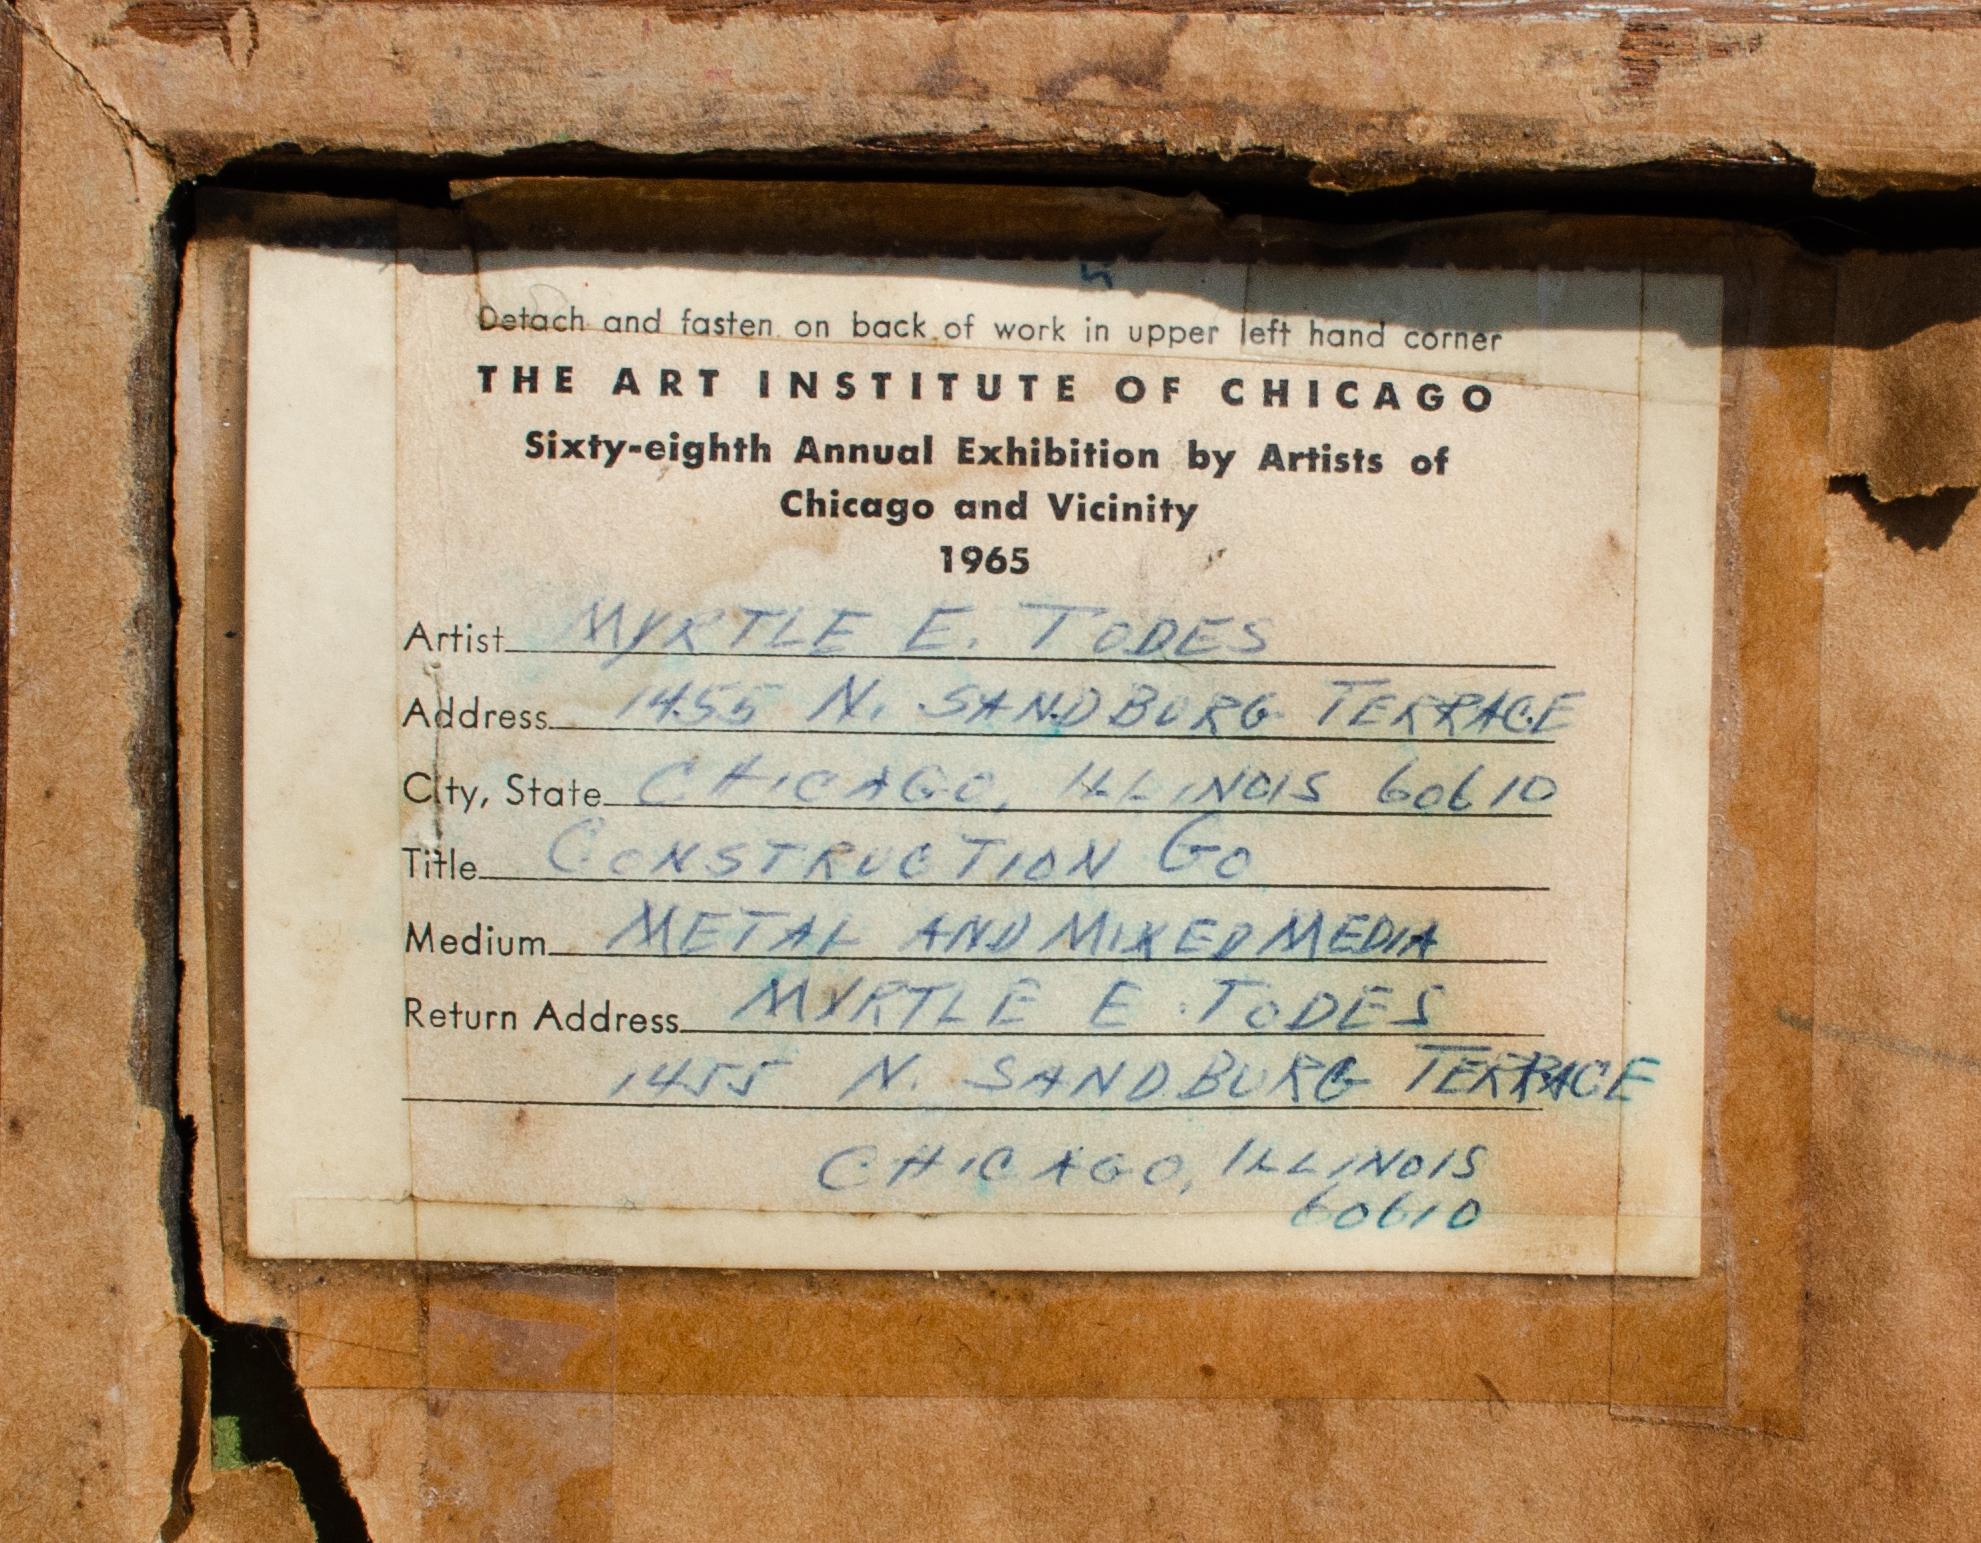 Detach and fasten on back of work in upper left hand corner
THE ART INSTITUTE OF CHICAGO
Sixty-eighth Annual Exhibition by Artists of
Chicago and Vicinity
1965
Artist MYRTLE E. TODES
Address 1455 N. SANDBURG TERRACE
City, State CHICAGO, ILLINOIS 60610
Title CONSTRUCTION GO
Medium METAL AND MIXED MEDIA
Return Address MYRTLE E. TODES
1455 N. SANDBURG TERRACE
CHICAGO, ILLINOIS
60610